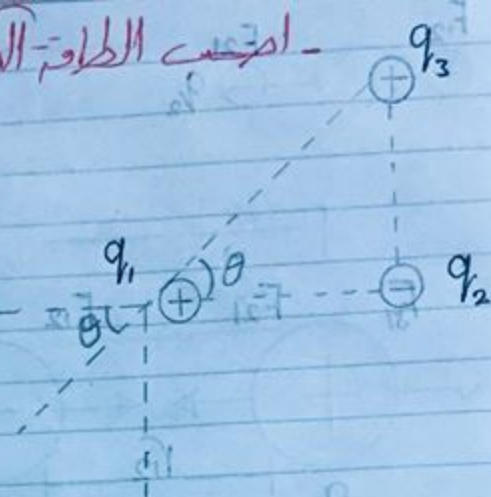 - احسب الطاقة
q₃
+
q₁
θ
+
-
q₂
θ